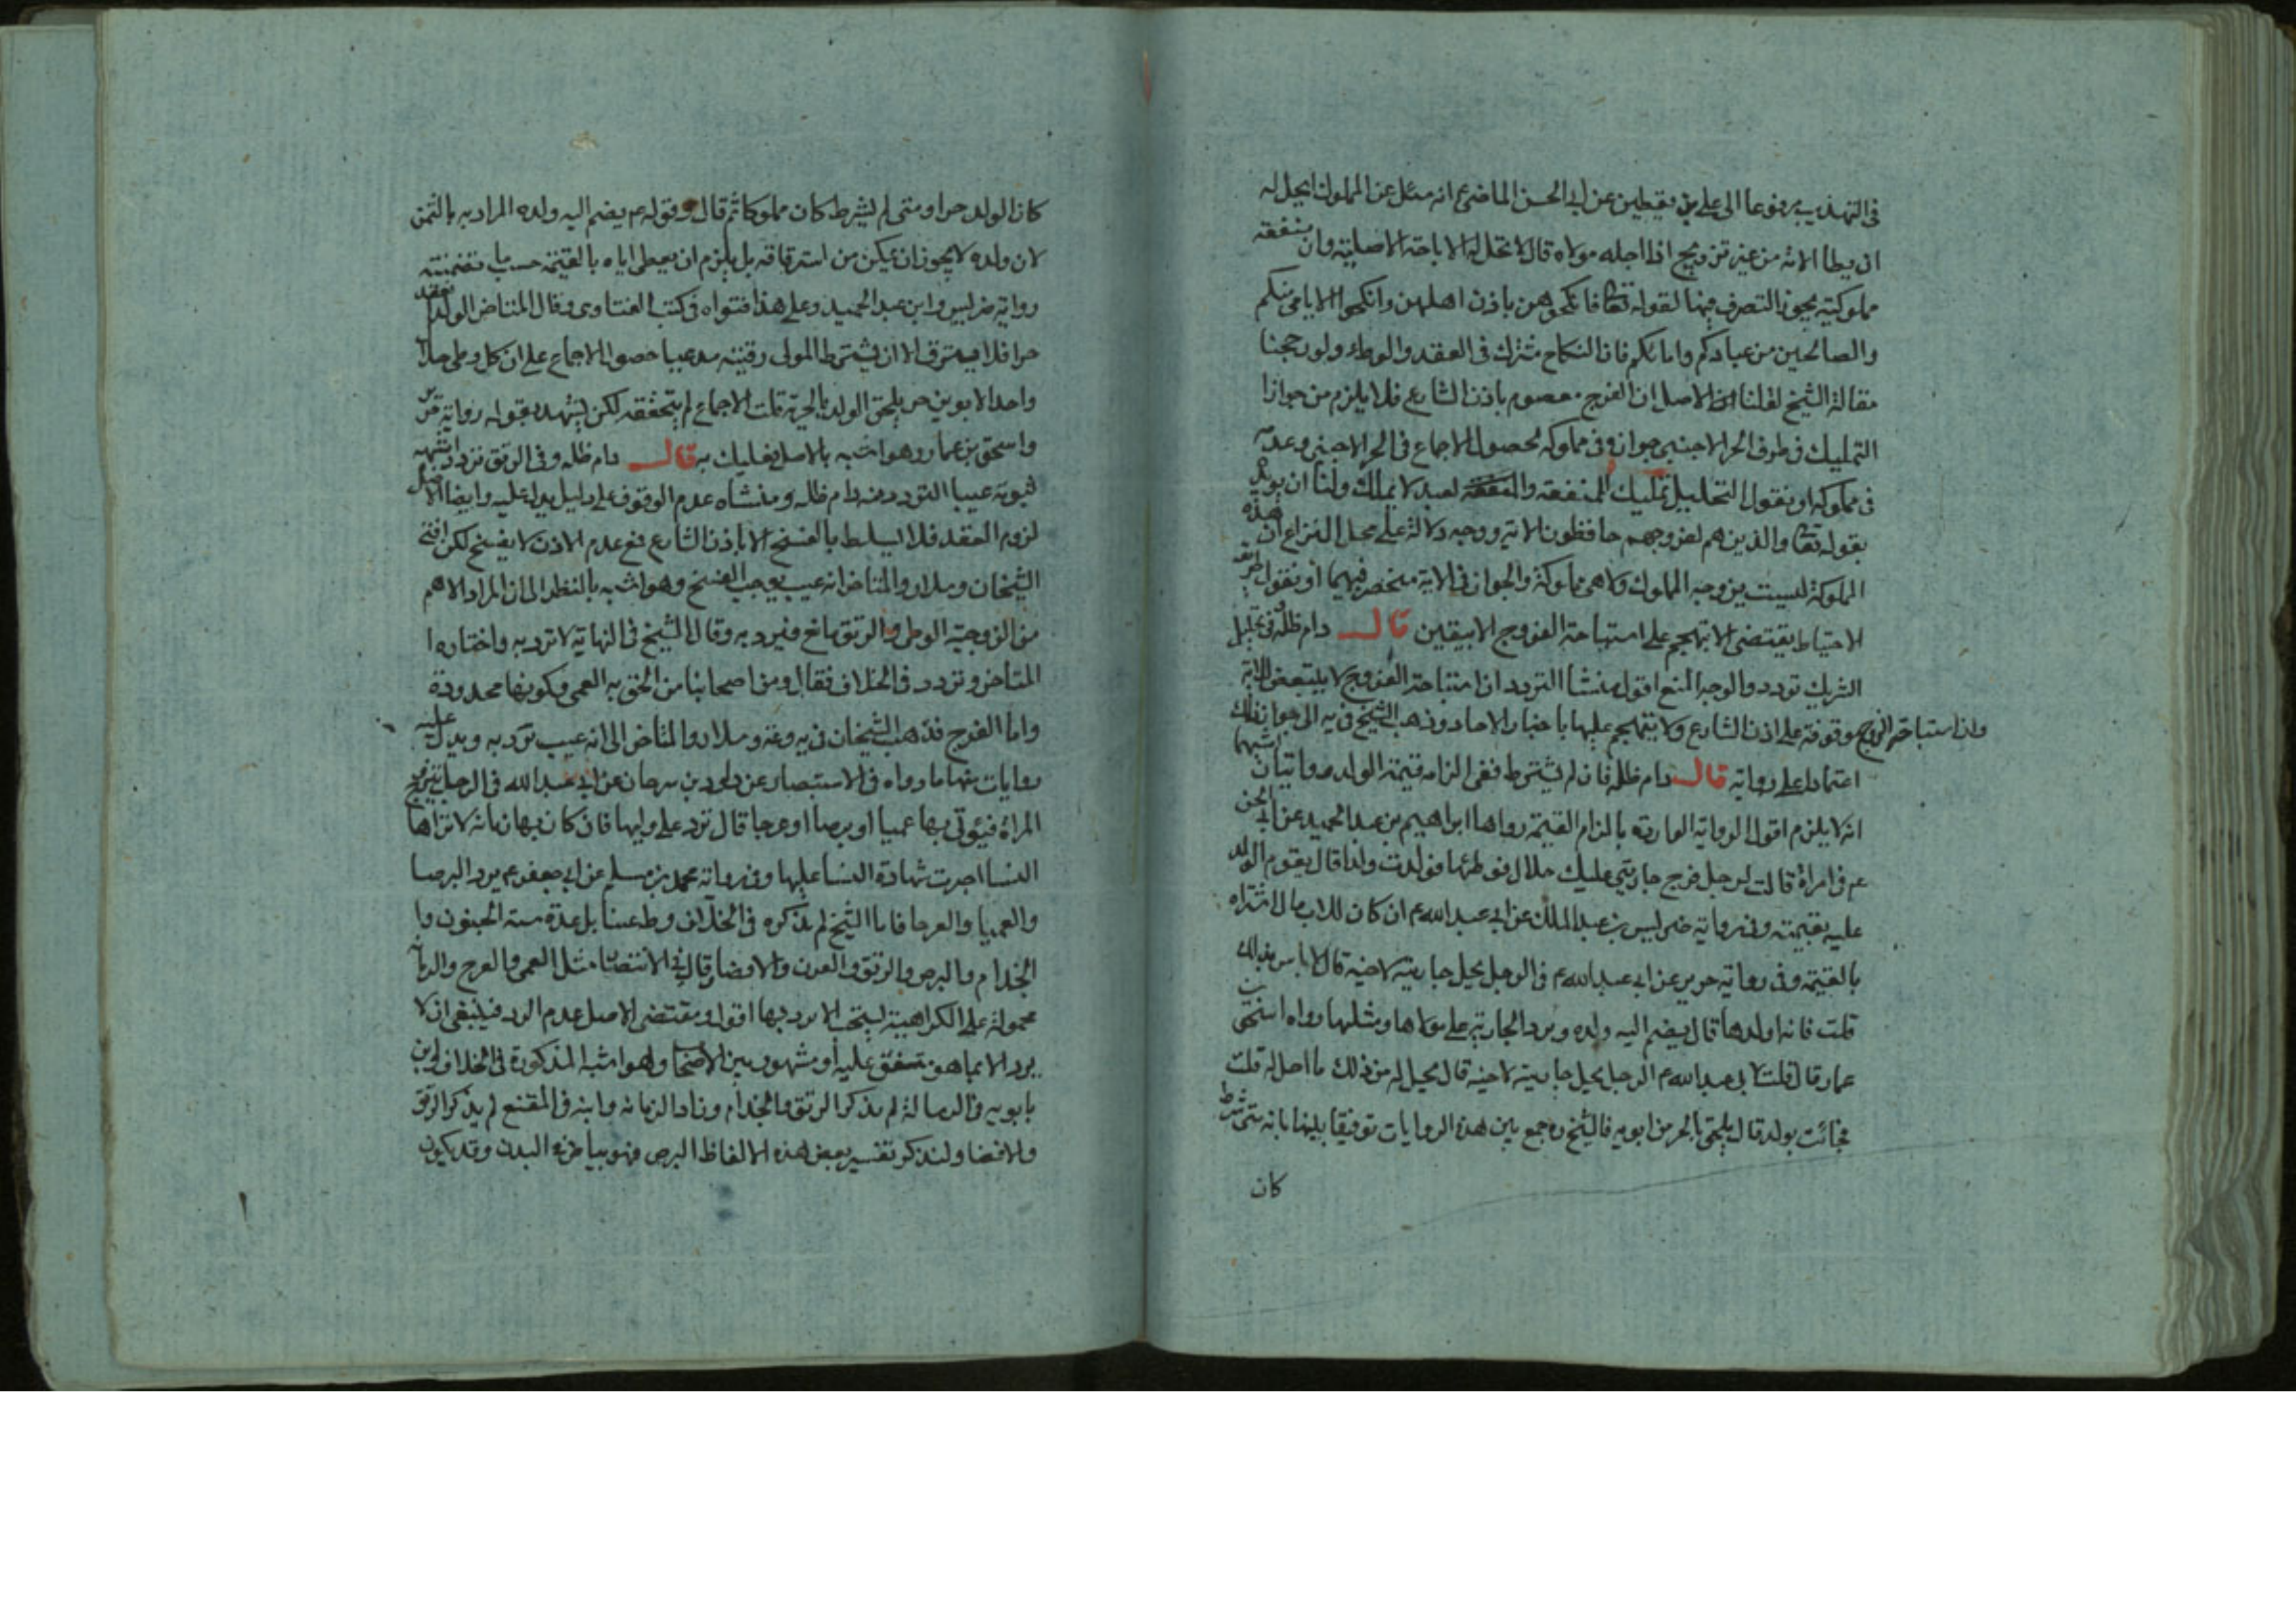 في التهذيب مرفوعا الى علي بن يقطين عن ابي الحسن الماضي ع انه سئل عن المملوك ايحل له
ان يطأ الامة من غير تزويج اذا احله مولاه قال لا تحل له الا باحة الاصلية وان منفعة
مملوكته يجوز التصرف فيها لقوله تعا فانكحوهن باذن اهلهن وانكحوا الايامى منكم
والصالحين من عبادكم وامائكم فان النكاح مشترك في العقد والوطء ولو رجحنا
مقالة الشيخ لقلنا ان الاصل ان الفرج معصوم باذن الشارع فلا يلزم من جواز
التمليك في طرف الحر الاجنبي جوازه في مملوكه لحصول الاجماع في الحر الاجنبي وعدمه
في مملوكه او نقول التحليل تمليك المنفعة والعبد لا يملك ولنا ان نؤيد
بقوله تعا والذين هم لفروجهم حافظون الاية ووجه دلالة على محل النزاع ان هذه
المملوكة ليست بزوجه المملوك ولا هي مملوكة والجواز في الاية منحصر فيهما او نقول طريقة
الاحتياط يقتضي الا يتهجم على استباحة الفروج الا بيقين قال دام ظله وفي تحليل
الشريك تردد والوجه المنع اقول منشأ التردد ان استباحة الفروج لا يتبعض للاية
وان استباحة الفروج موقوفة على اذن الشارع ولا يتهجم عليها باخبار الاحاد وذهب الشيخ في يه الى جواز ذلك
اعتمادا على رواية قال دام ظله فان لم يشترط ففي الزامه قيمة الولد روايتان اشبههما
انه لا يلزم اقول الرواية الواردة بالزام القيمة رواها ابراهيم بن عبد الحميد عن ابي الحسن
عم في امراة قالت لرجل فرج جاريتي عليك حلال فوطئها فولدت ولدا قال يقوم الولد
عليه بقيمته وفي رواية ضريس بن عبد الملك عن ابي عبد الله عم ان كان للاب مال اشتراه
بالقيمة وفي رواية حريز عن ابي عبد الله ع في الرجل يحل جاريته لاخيه قال لا باس بذلك
قلت فانه اولدها قال يضم اليه ولده ويرد الجارية على مولاها ومثلها رواه اسحق بن
عمار قال قلت لابي عبد الله عم الرجل يحل جاريته لاخيه قال يحل له من ذلك ما احل له قلت
فجائت بولد قال يلحق بالحر من ابويه فالشيخ ره جمع بين هذه الروايات توفيقا بينها بانه متى شرط
كان
كان الولد حرا ومتى لم يشرط كان مملوكا ثم قال وقوله عم يضم اليه ولده المراد به بالثمن
لان ولده لا يجوز ان يمكن من استرقاقه بل يلزم ان يعطى اياه بالقيمة حسب ما تضمنته
رواية ضريس وابن عبد الحميد وعلى هذا فتواه في كتب الفتاوى وقال المتاخر الولد ينعقد
حرا فلا يسترق الا ان يشترط المولى رقيته مدعيا حصول الاجماع على ان كل وطى حلال
واحد الابوين حر يلحق الولد بالحرية قلت الاجماع لم يتحققه لكن يشهد بقوله رواية حريز
واسحق بن عمار وهو اشبه بالاصل فعليك به قال دام ظله وفي الرتق تردد اشبهه
ثبوته عيبا التردد منه دام ظله ومنشاه عدم الوقوف على دليل يدل عليه وايضا الاصل
لزوم العقد فلا يسلط بالفسخ الا باذن الشارع فمع عدم الاذن لا يفسخ لكن افتى
الشيخان وسلار والمتاخر انه عيب يوجب الفسخ وهو اشبه بالنظر الى ان المراد الاهم
من الزوجية الوطى والرتق مانع فيرد به وقال الشيخ في النهاية لا ترد به واختاره
المتاخر وتردد في الخلاف فقال ومن اصحابنا من الحق به العمى وكونها محدودة
واما العرج فذهب الشيخان في يه وعه وسلار والمتاخر الى انه عيب ترد به ويدل عليه
روايات منها ما رواه في الاستبصار عن داود بن سرحان عن ابي عبد الله في الرجل يتزوج
المراة فيؤتى بها عميا او برصا او عرجا قال ترد على وليها فان كان بها زمانة لا تراها
النسا اجرت شهادة النسا عليها وفي رواية محمد بن مسلم عن ابي جعفر عم يرد البرصا
والعميا والعرجا فاما الشيخ لم يذكره في الخلاف وطعنا بل عدة ستة الجنون وا
الجذام والبرص والرتق والقرن والافضا وقال في الاستبصار مثل العمى والعرج والزمانة
محمولة على الكراهية يستحب الا يرد بها اقول ومقتضى الاصل عدم الرد فينبغي ان لا
يرد الا بما هو متفق عليه او مشهور بين الاصحا وهو اشبه المذكورة في الخلاف وابن
بابويه في الرسالة لم يذكر الرتق والجذام وزاد الزمانة وابنه في المقنع لم يذكر الرتق
والافضا ولنذكر تفسير بعض هذه الالفاظ البرص فهو بياض في البدن وقد يكون